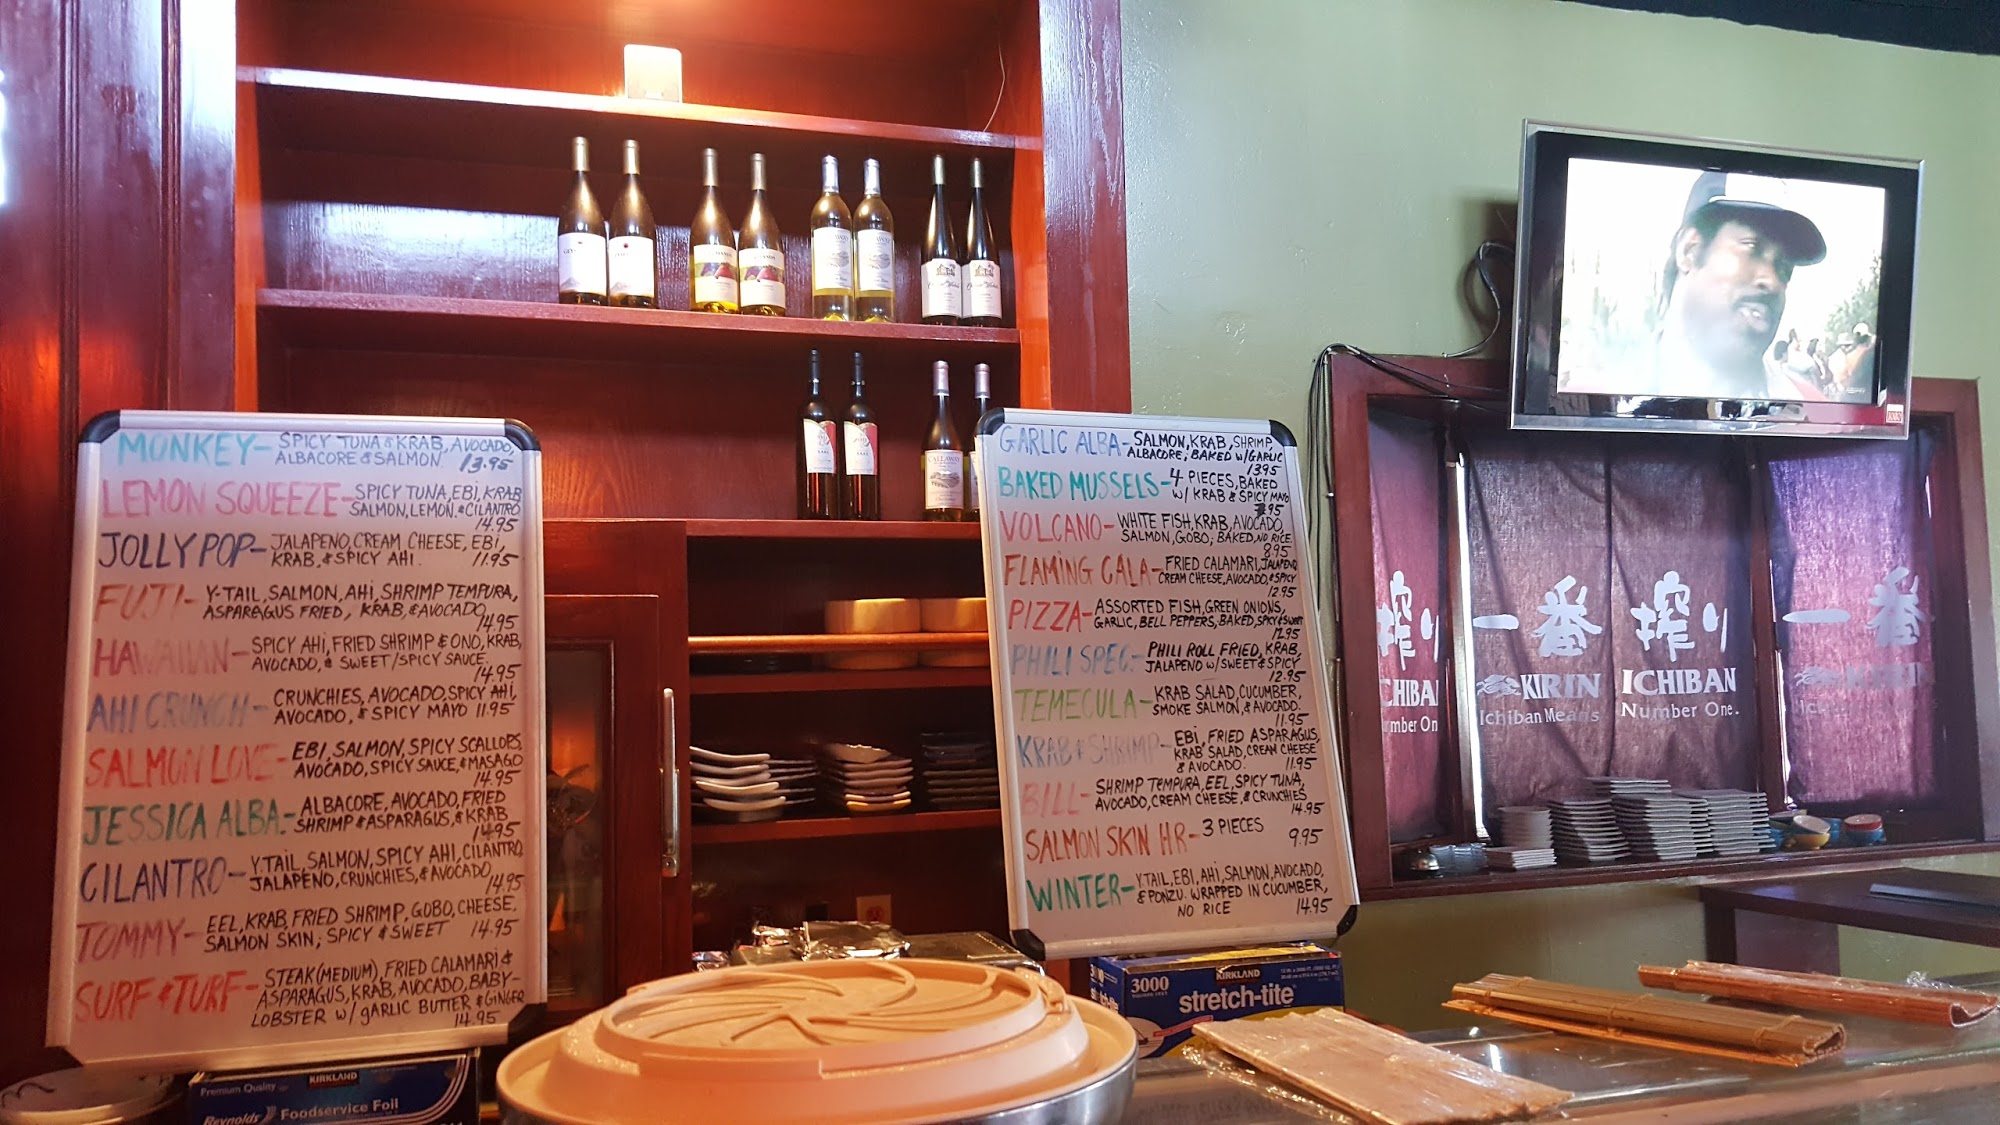 MONKEY- SPICY TUNA & KRAB, AVOCADO,
ALBACORE & SALMON 13.95
LEMON SQUEEZE- SPICY TUNA, EBI, KRAB
SALMON, LEMON & CILANTRO
14.95
JOLLY POP- JALAPENO, CREAM CHEESE, EBI,
KRAB, & SPICY AHI. 11.95
FUJI- Y-TAIL, SALMON, AHI, SHRIMP TEMPURA,
ASPARAGUS FRIED, KRAB, & AVOCADO
14.95
HAWAIIAN- SPICY AHI, FRIED SHRIMP & ONO, KRAB,
AVOCADO, & SWEET/SPICY SAUCE.
14.95
AHI CRUNCH- CRUNCHIES, AVOCADO, SPICY AHI,
AVOCADO, & SPICY MAYO 11.95
SALMON LOVE- EBI, SALMON, SPICY SCALLOPS,
AVOCADO, SPICY SAUCE, & MASAGO
14.95
JESSICA ALBA- ALBACORE, AVOCADO, FRIED
SHRIMP & ASPARAGUS, & KRAB
14.95
CILANTRO- Y.TAIL, SALMON, SPICY AHI, CILANTRO,
JALAPENO, CRUNCHIES, & AVOCADO,
14.95
TOMMY- EEL, KRAB, FRIED SHRIMP, GOBO, CHEESE,
SALMON SKIN; SPICY & SWEET 14.95
SURF & TURF- STEAK (MEDIUM), FRIED CALAMARI &
ASPARAGUS, KRAB, AVOCADO, BABY-
LOBSTER W/ GARLIC BUTTER & GINGER
14.95
GARLIC ALBA- SALMON, KRAB, SHRIMP,
ALBACORE; BAKED W/GARLIC
1395
BAKED MUSSELS- 4 PIECES, BAKED
W/ KRAB & SPICY MAYO
95
VOLCANO- WHITE FISH, KRAB, AVOCADO,
SALMON, GOBO; BAKED, NO RICE.
8.95
FLAMING CALA- FRIED CALAMARI, JALAPENO
CREAM CHEESE, AVOCADO, & SPICY
12.95
PIZZA- ASSORTED FISH, GREEN ONIONS,
GARLIC, BELL PEPPERS, BAKED, SPICY & SWEET
12.95
PHILI SPEC.- PHILI ROLL FRIED, KRAB,
JALAPENO W/ SWEET & SPICY
12.95
TEMECULA- KRAB SALAD, CUCUMBER,
SMOKE SALMON, & AVOCADO.
11.95
KRAB & SHRIMP- EBI, FRIED ASPARAGUS,
KRAB SALAD, CREAM CHEESE
& AVOCADO. 11.95
BILL- SHRIMP TEMPURA, EEL, SPICY TUNA,
AVOCADO, CREAM CHEESE, & CRUNCHIES
14.95
SALMON SKIN HR- 3 PIECES 9.95
WINTER- Y.TAIL, EBI, AHI, SALMON, AVOCADO,
& PONZU. WRAPPED IN CUCUMBER,
NO RICE 14.95
CALLAWAY
搾り 一番 搾り 一番
CHIBAN KIRIN ICHIBAN KIRIN
umber One. Ichiban Means Number One.
3000 KIRKLAND
stretch-tite
Premium Quality KIRKLAND
Reynolds Foodservice Foil